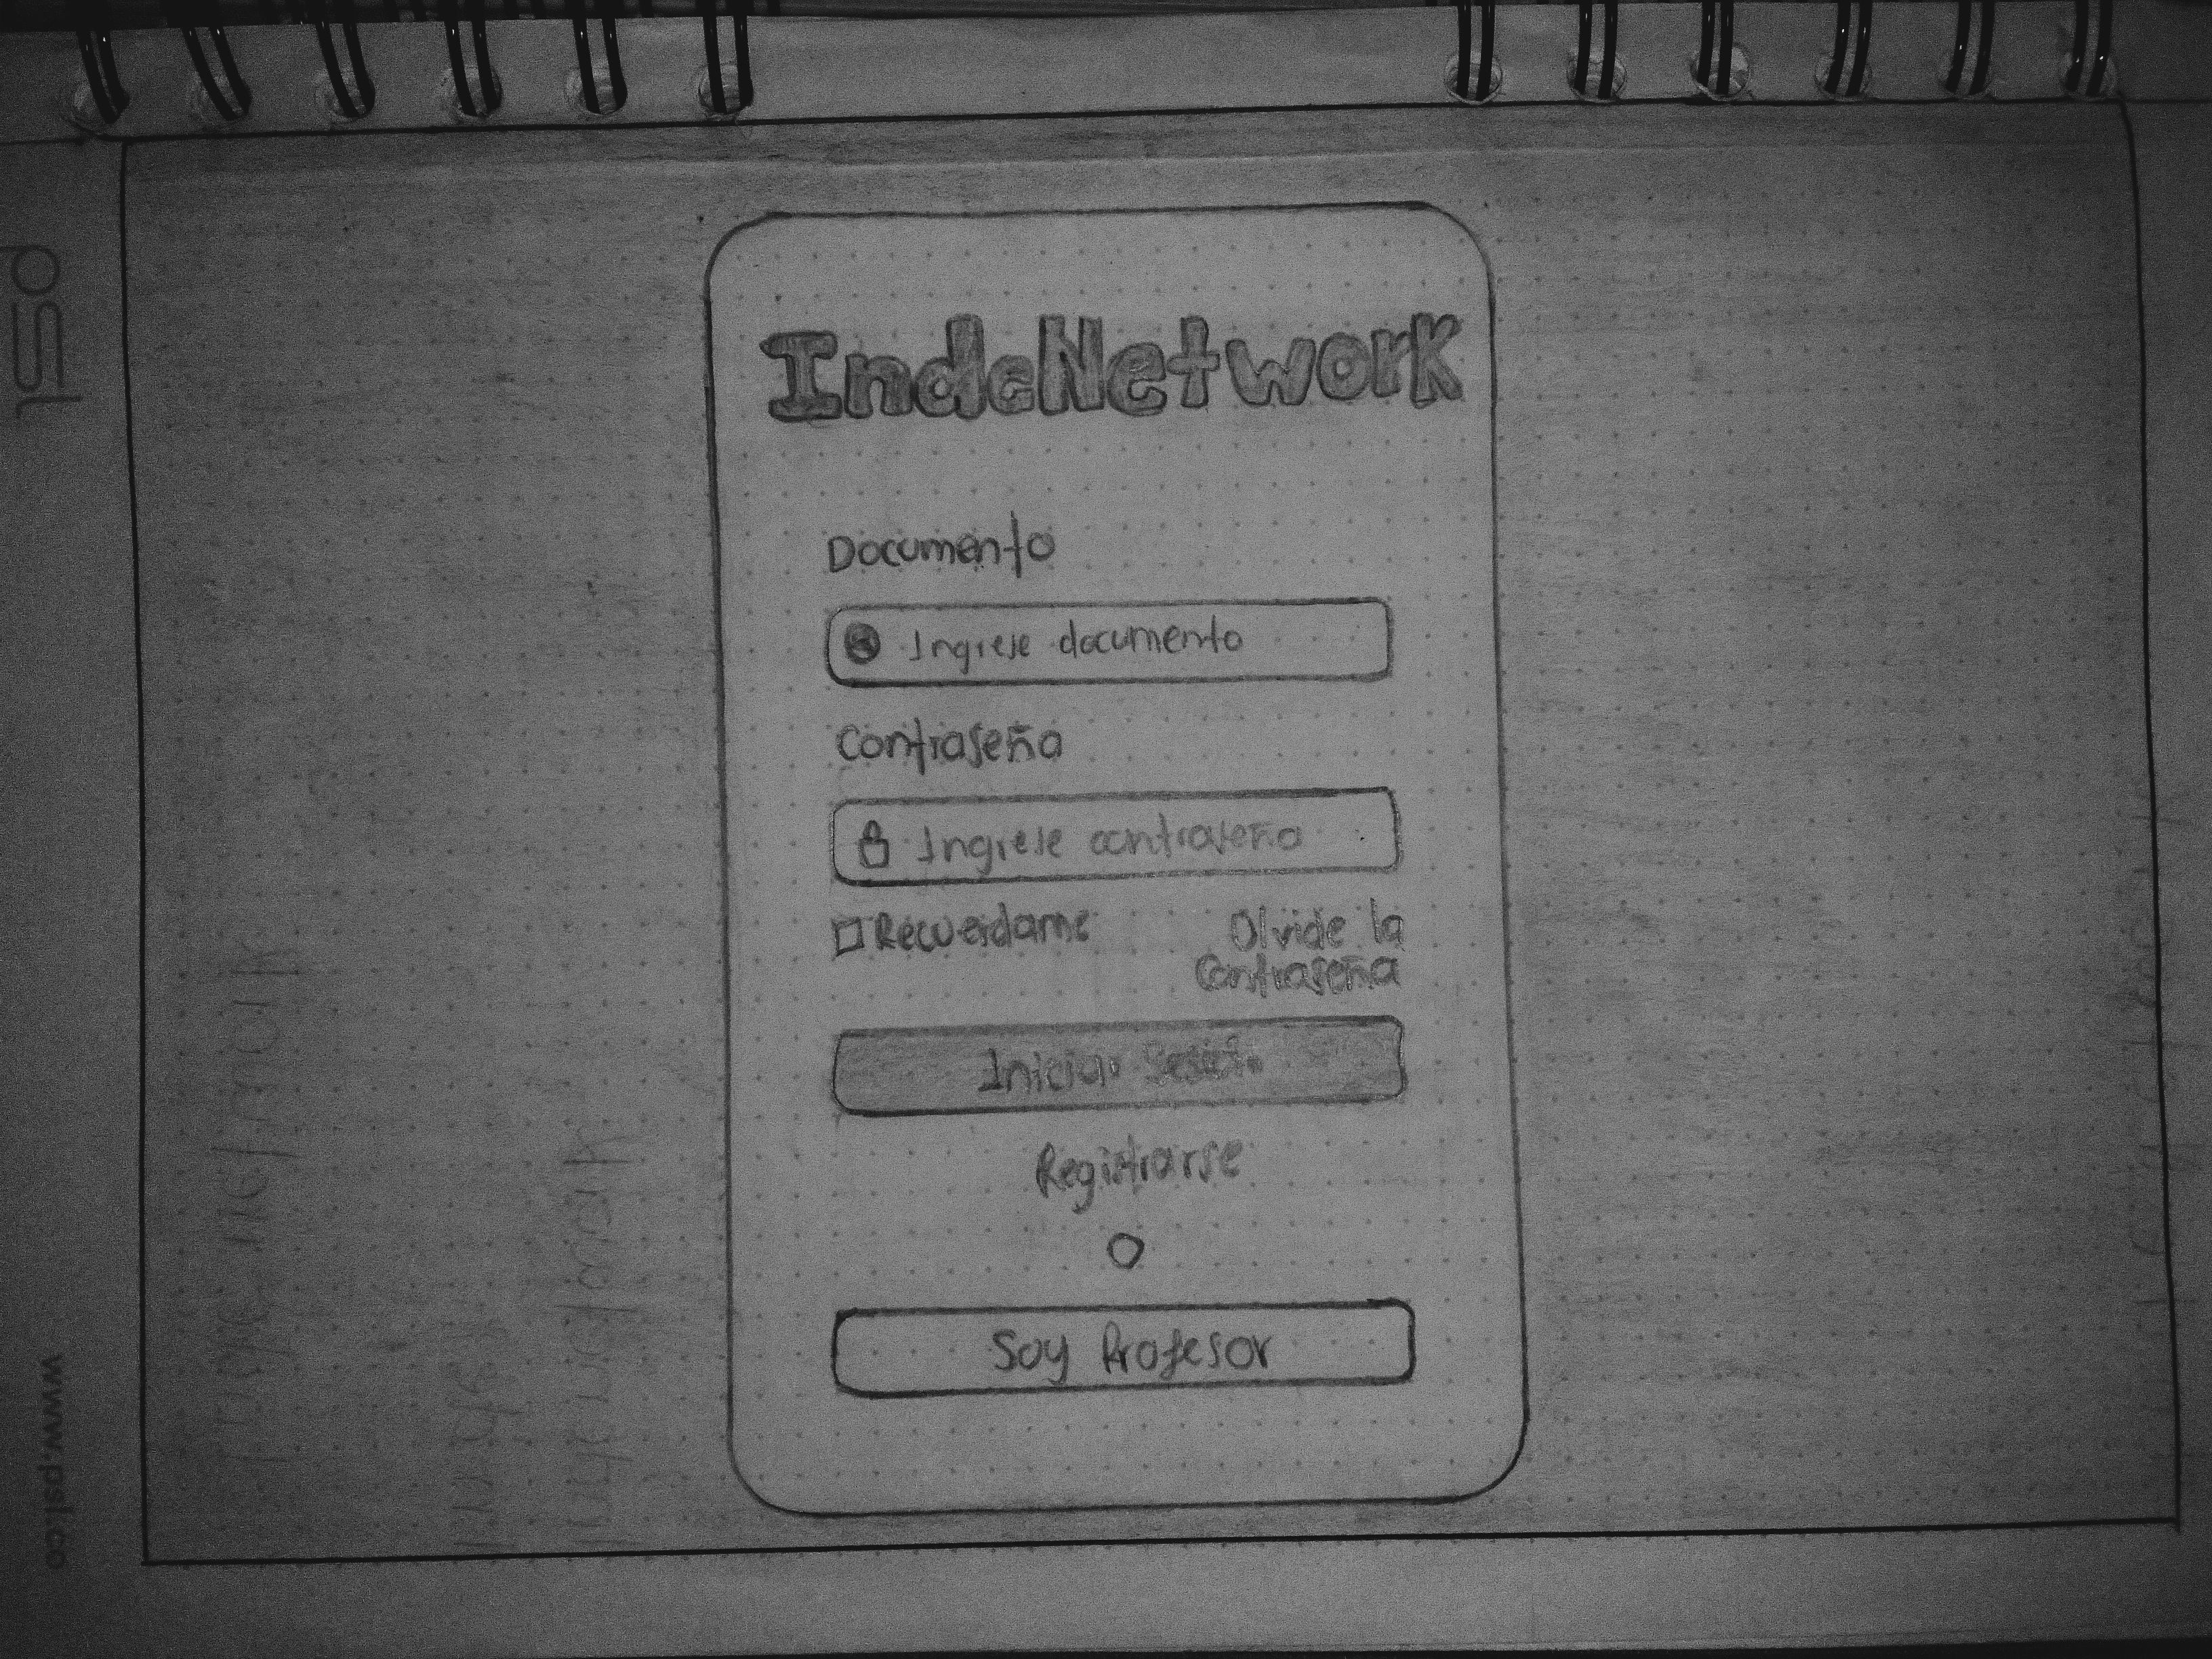 IndeNetwork
Documento
Ingrese documento
Contraseña
Ingrese contraseña
Recuerdame
Olvide la
Contraseña
Iniciar Sesión
Registrarse
O
Soy Profesor
psl
www.psl.co